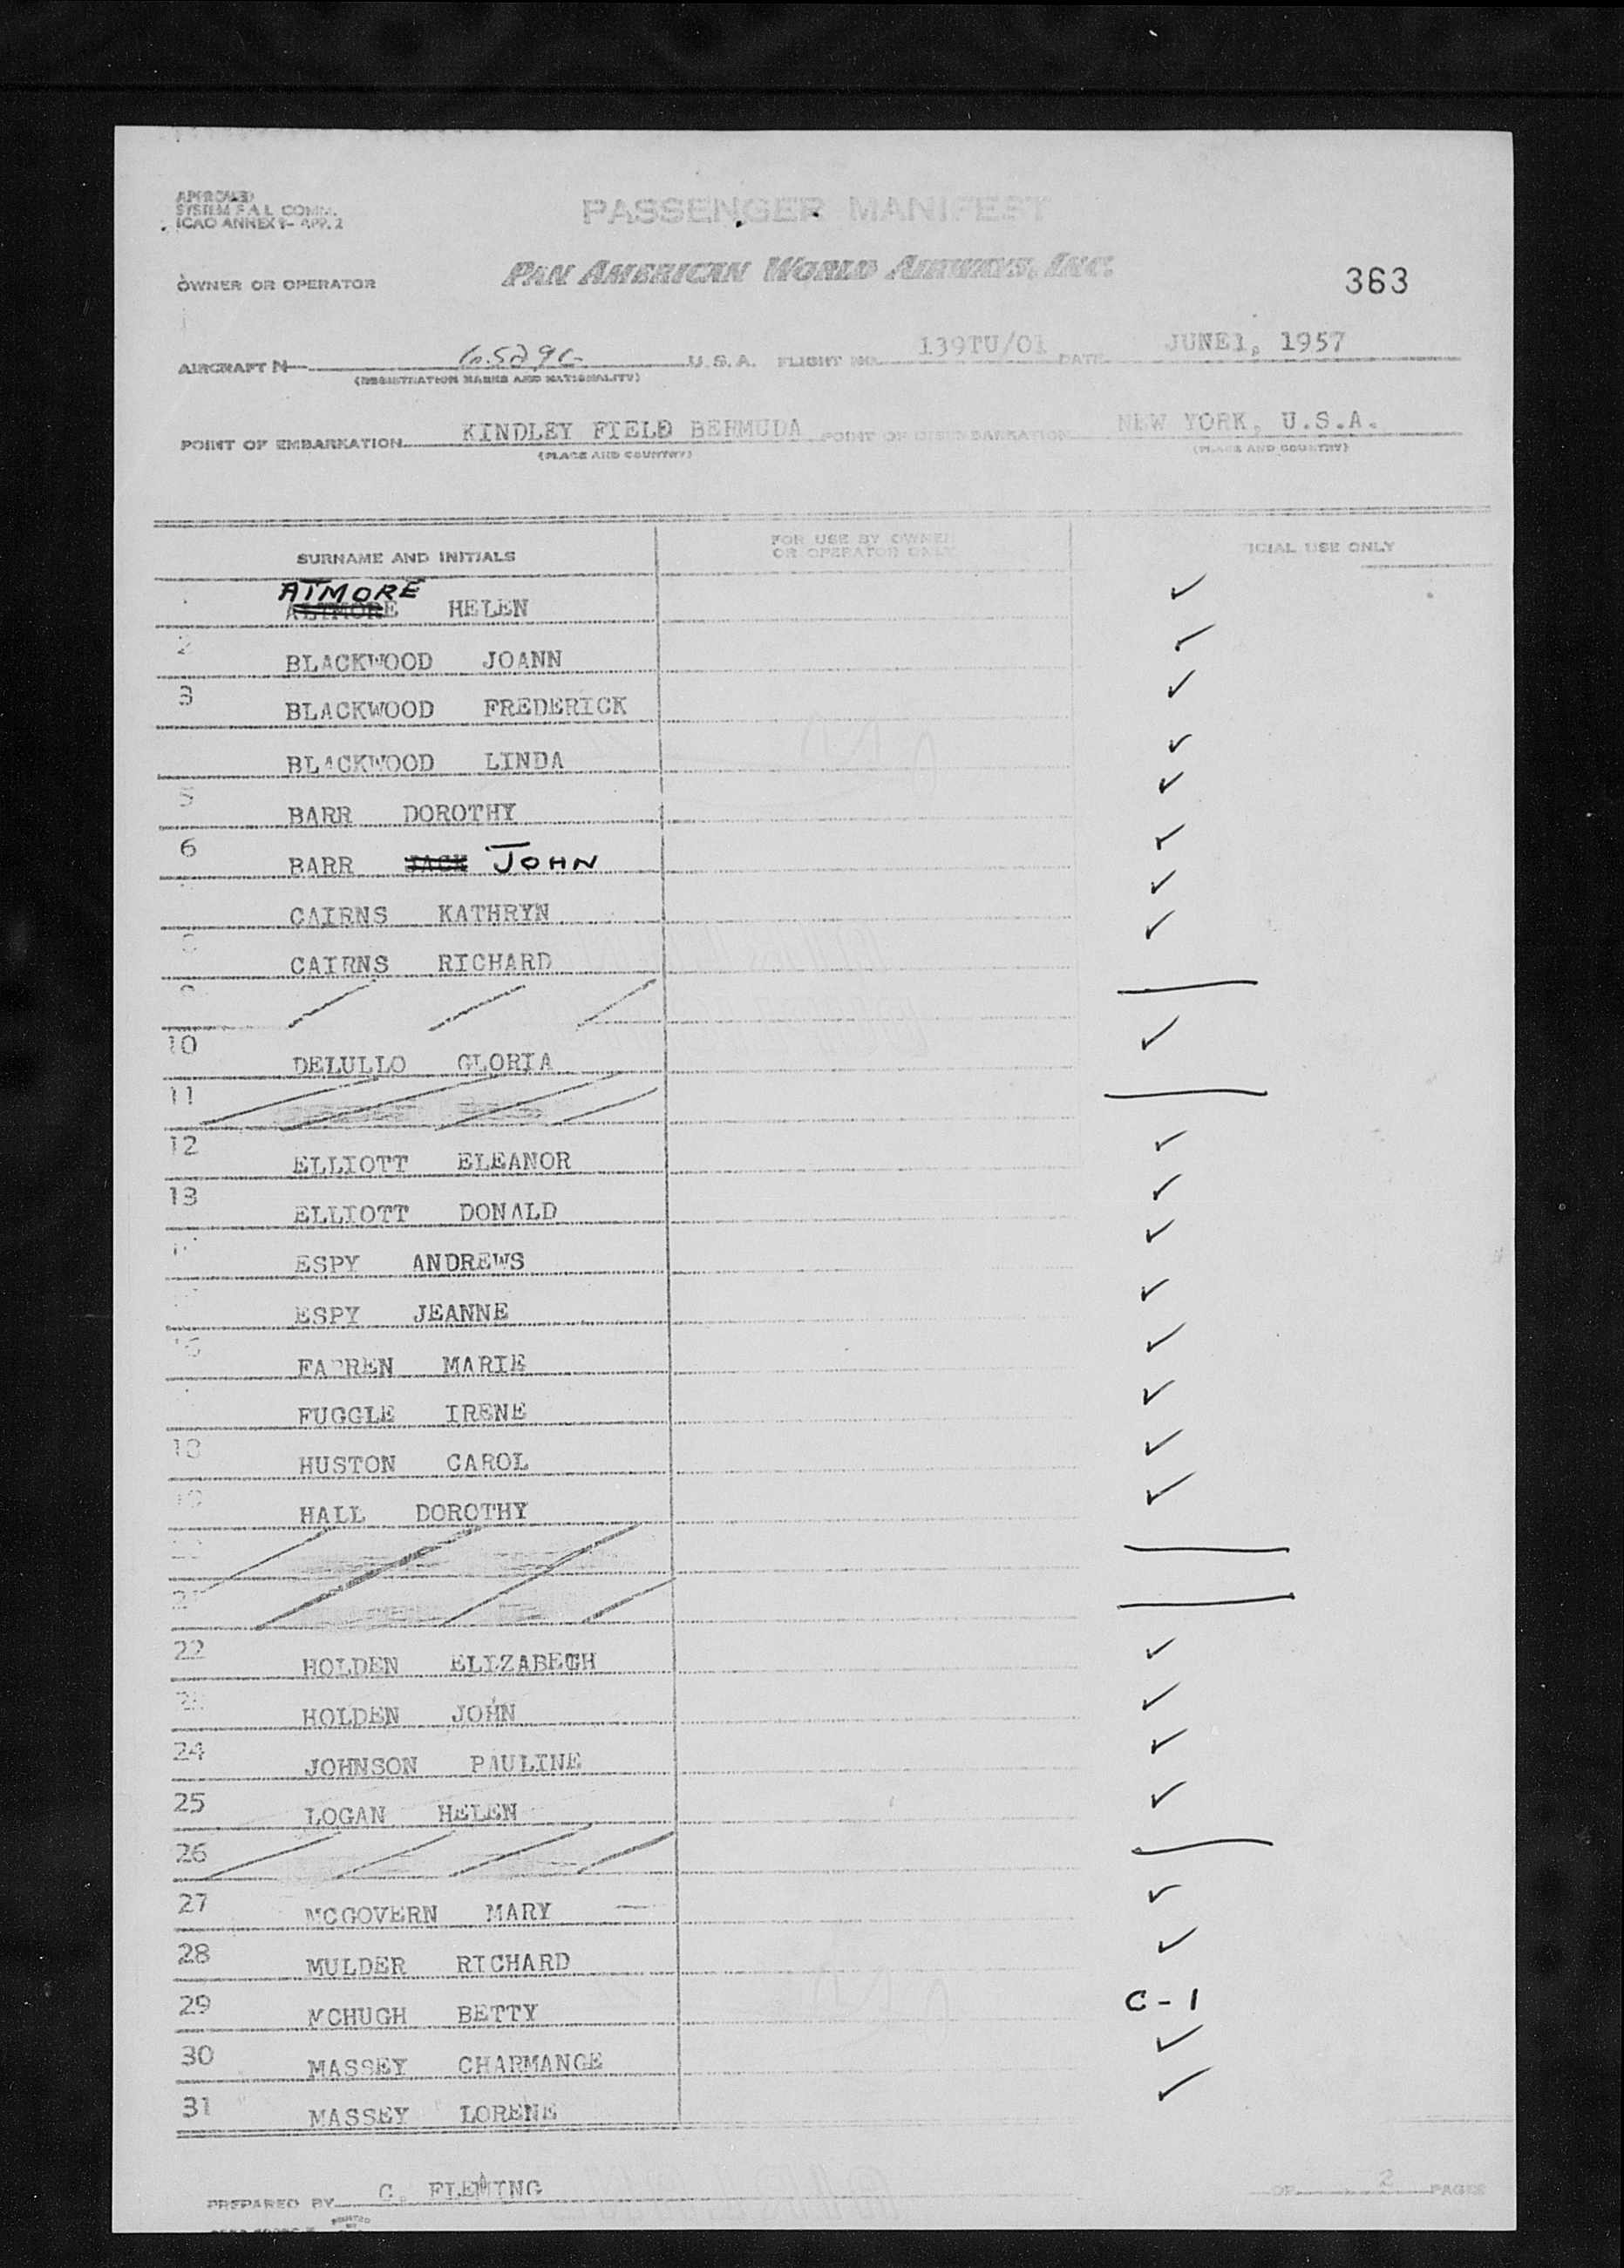 APPROVED
SYSTEM F.A.L. COMM.
ICAO ANNEX 9- APP. 2
PASSENGER MANIFEST
OWNER OR OPERATOR PAN AMERICAN WORLD AIRWAYS, INC. 363
AIRCRAFT N U.S.A. FLIGHT NO. 139TU/01 DATE JUNE1, 1957
(REGISTRATION MARKS AND NATIONALITY)
POINT OF EMBARKATION KINDLEY FIELD BERMUDA POINT OF DISEMBARKATION NEW YORK, U.S.A.
(PLACE AND COUNTRY) (PLACE AND COUNTRY)
SURNAME AND INITIALS FOR USE BY OWNER ICIAL USE ONLY
OR OPERATOR ONLY
ATMORE
HELEN ✓
2 BLACKWOOD JOANN ✓
3 BLACKWOOD FREDERICK ✓
BLACKWOOD LINDA ✓
5 BARR DOROTHY ✓
6 BARR JACK JOHN ✓
CAIRNS KATHRYN ✓
CAIRNS RICHARD ✓
10 DELULLO GLORIA ✓
11
12 ELLIOTT ELEANOR ✓
13 ELLIOTT DONALD ✓
ESPY ANDREWS ✓
ESPY JEANNE ✓
16 FARREN MARIE ✓
FUGGLE IRENE ✓
18 HUSTON CAROL ✓
19 HALL DOROTHY ✓
21
22 HOLDEN ELIZABETH ✓
HOLDEN JOHN ✓
24 JOHNSON PAULINE ✓
25 LOGAN HELEN ✓
26
27 MCGOVERN MARY ✓
28 MULDER RICHARD ✓
29 MCHUGH BETTY C-1
30 MASSEY CHARMANGE ✓
31 MASSEY LORENE ✓
PREPARED BY C. FLEMING OF 2 PAGES
PRINTED